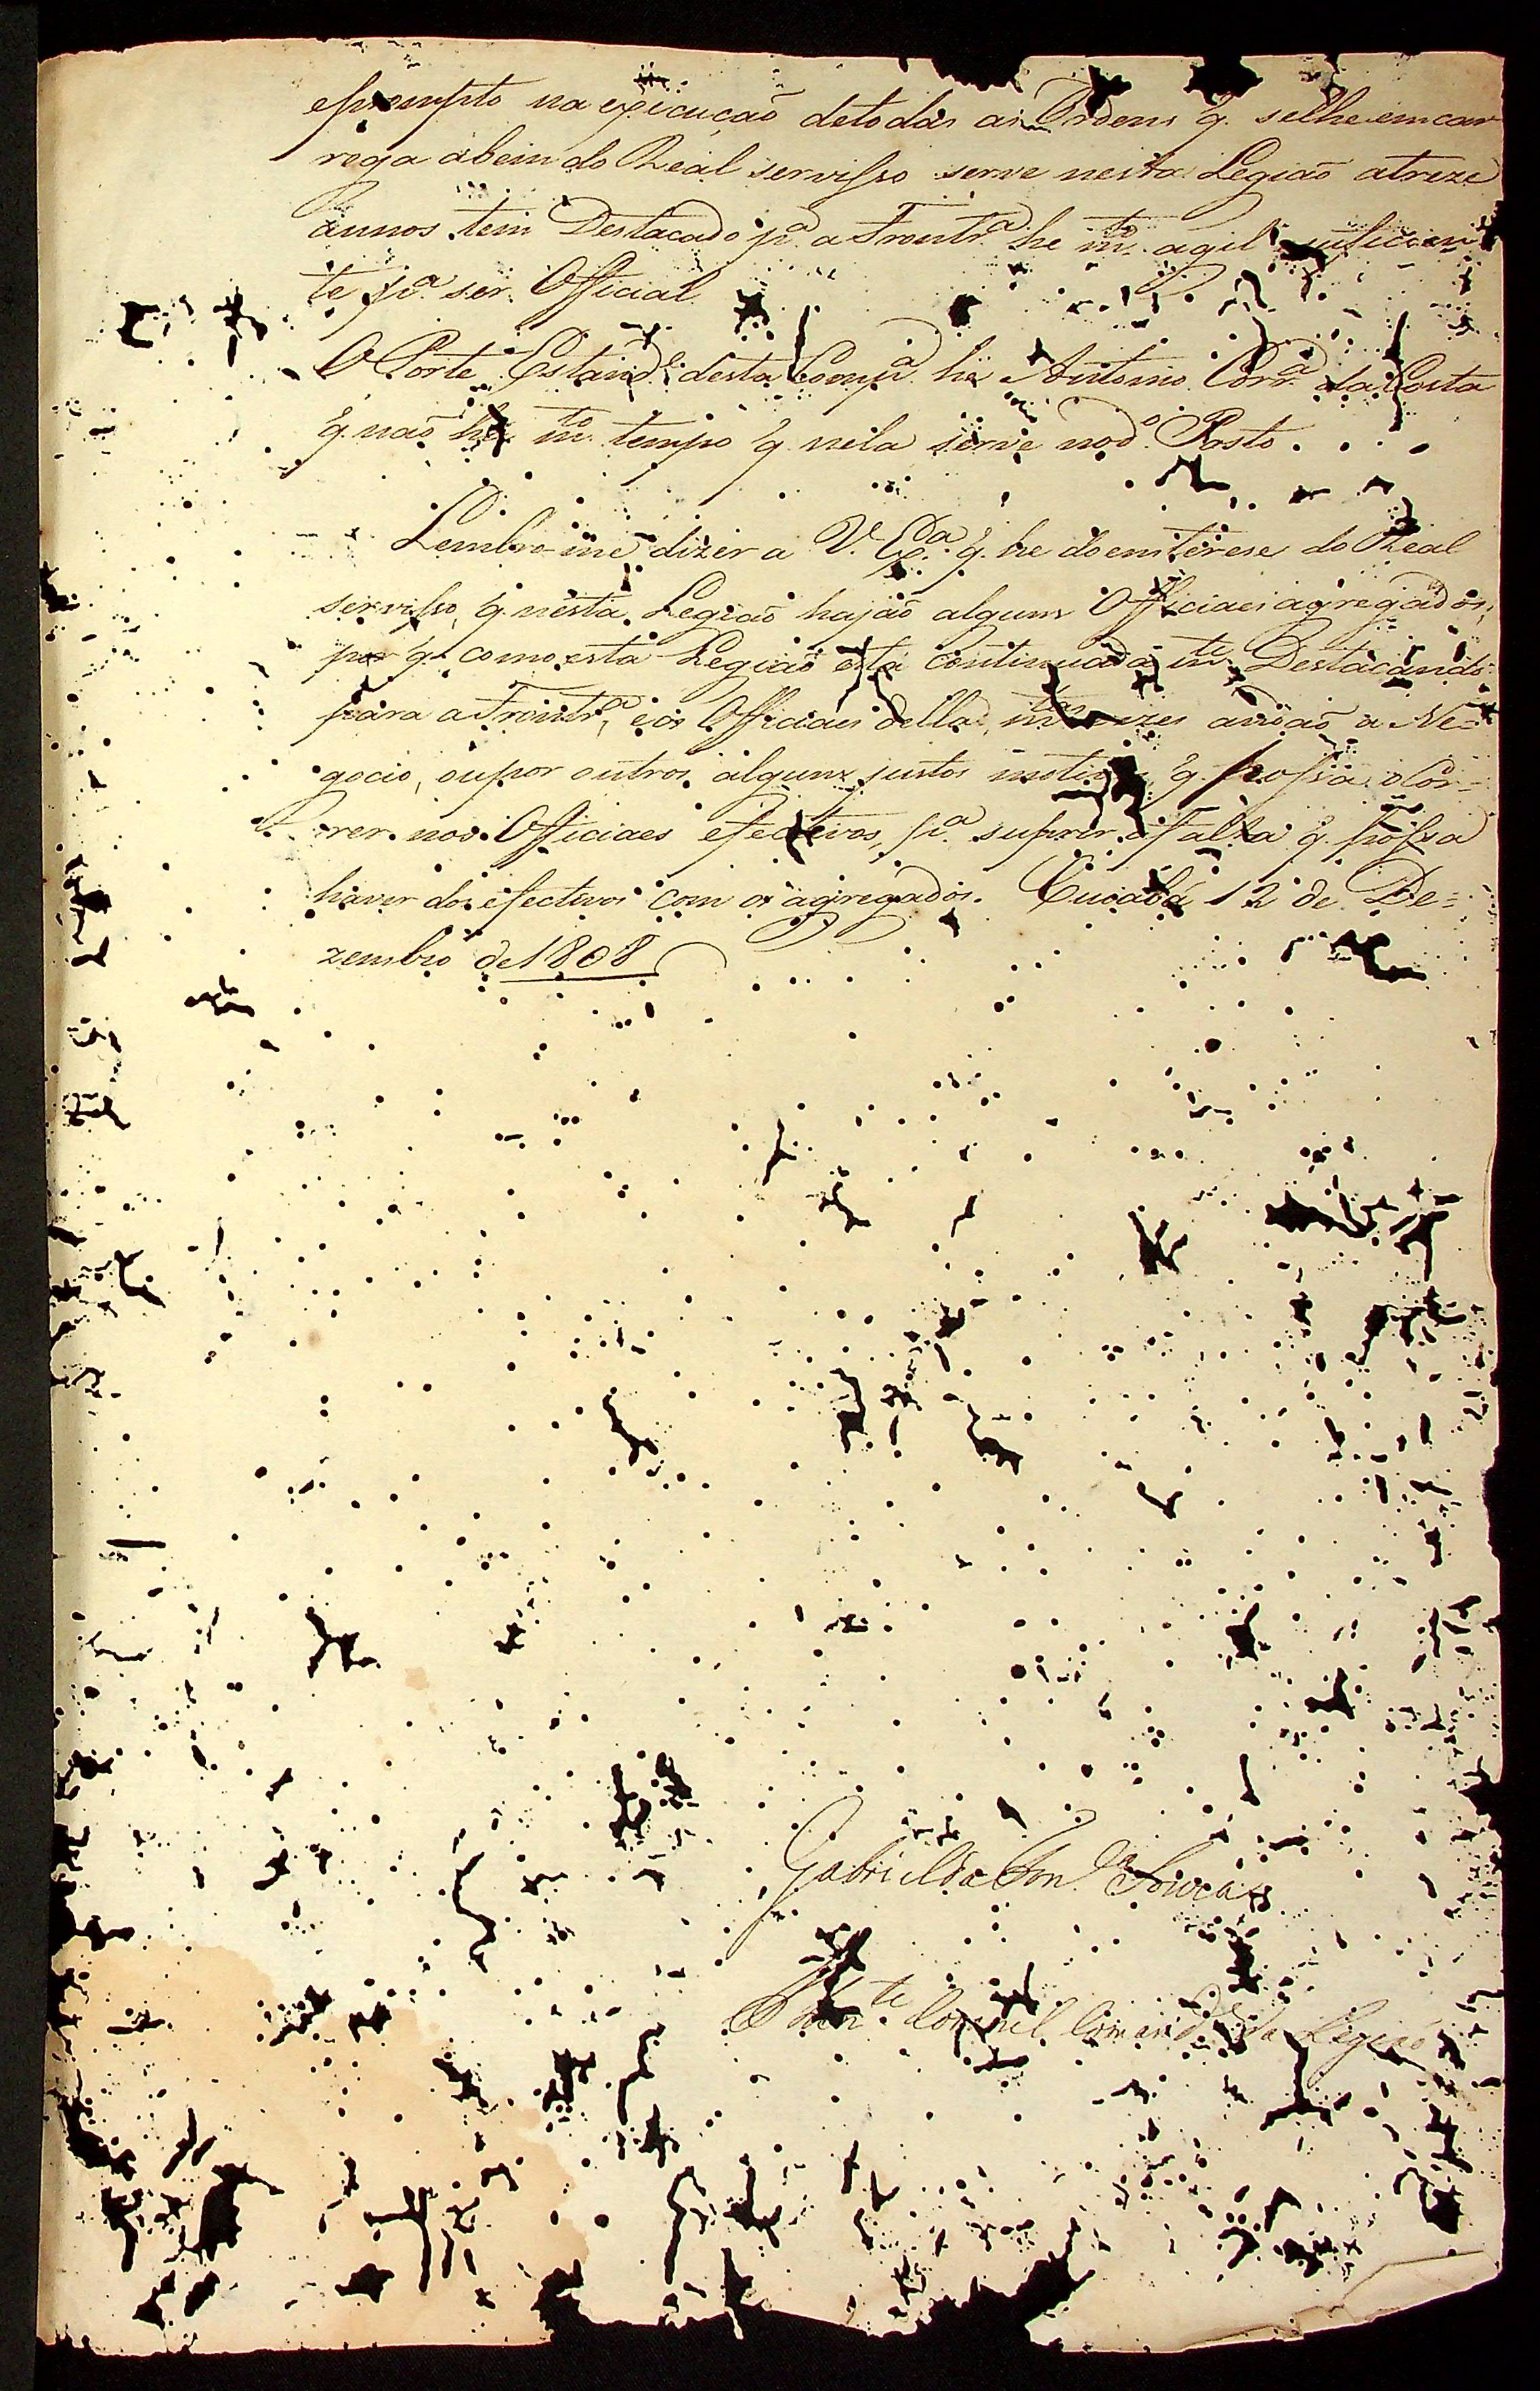 eprompto na execucaõ detodas as Ordens q. selheemcar
rega abem do Real servisso serve nesta Legiaõ atreze
annos tem Destacado p.ª a Frontr.ª he m.to agil suficien
te p.ª ser Official
O Porte Estand.e desta Comp.ª he Antonio Corr.ª da Costa
q. naõ he m.to tempo q. nela serve nod.º Posto.
Lembro-me dizer a V. Ex.ª q. he doenterese do Real
servisso, q. nesta Legiaõ hajaõ alguns Officiaes agregados,
por q. como esta Legiaõ esta continuada m.te Destacando
para a Frontr.ª, e os Officiaes della, m.tas vezes andaõ a Ne=
gocio, oupor outros alguns justos motivos q. possa oCor-
rer nos Officiaes efectivos, p.ª suprir a falta q. possa
haver dos efectivos com os agregados. Cuiabá 12 de De=
zembro de 1808
Gabriel da Fon.ca Souza
Then.te Coronel Comand.e da Legiaõ